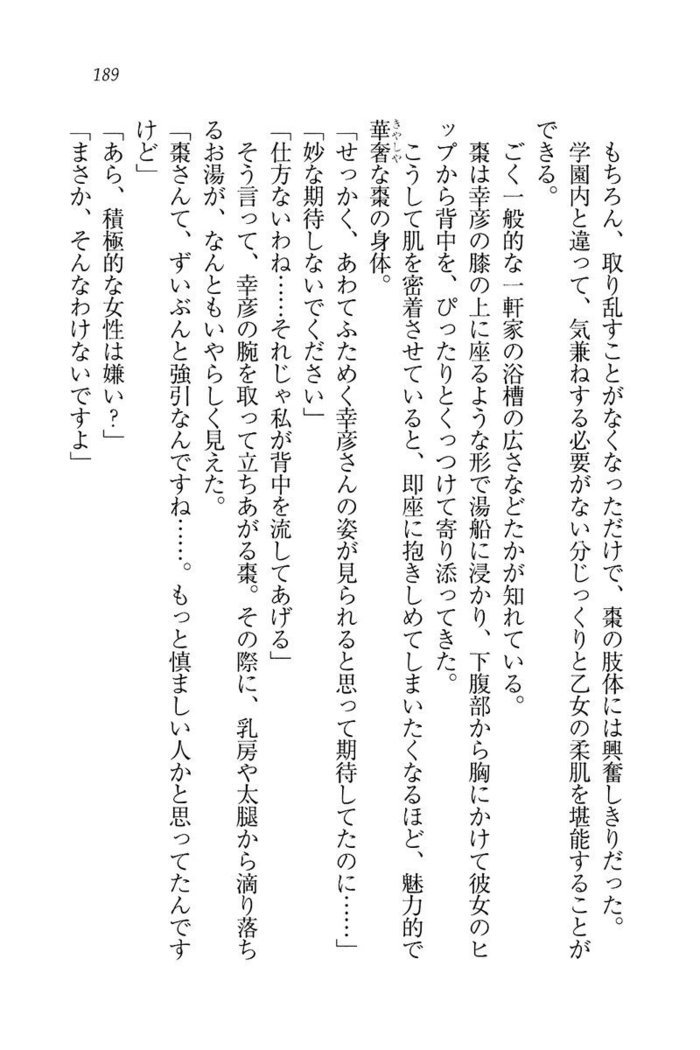 189
もちろん、取り乱すことがなくなっただけで、棗の肢体には興奮しきりだった。
学園内と違って、気兼ねする必要がない分じっくりと乙女の柔肌を堪能することが
できる。
ごく一般的な一軒家の浴槽の広さなどたかが知れている。
棗は幸彦の膝の上に座るような形で湯船に浸かり、下腹部から胸にかけて彼女のヒ
ップから背中を、ぴったりとくっつけて寄り添ってきた。
こうして肌を密着させていると、即座に抱きしめてしまいたくなるほど、魅力的で
華奢な棗の身体。
きゃしゃ
「せっかく、あわてふためく幸彦さんの姿が見られると思って期待してたのに……」
「妙な期待しないでください」
「仕方ないわね……それじゃ私が背中を流してあげる」
そう言って、幸彦の腕を取って立ちあがる棗。その際に、乳房や太腿から滴り落ち
るお湯が、なんともいやらしく見えた。
「棗さんて、ずいぶんと強引なんですね……。もっと慎ましい人かと思ってたんです
けど」
「あら、積極的な女性は嫌い？」
「まさか、そんなわけないですよ」